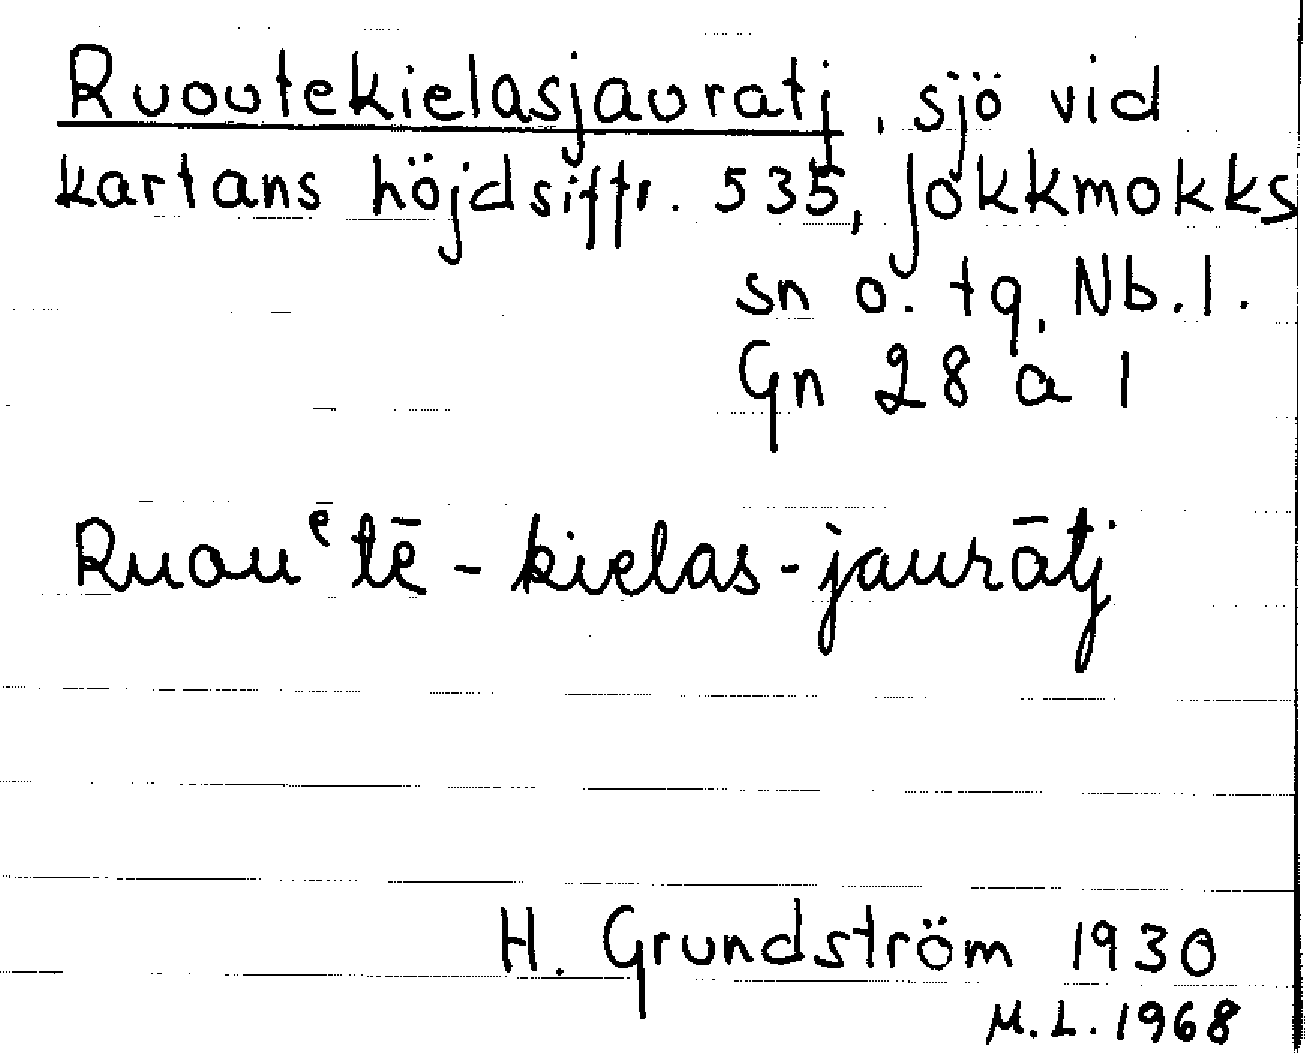 Ruoutekielasjauratj, sjö vid
kartans höjdsiffr. 535, Jokkmokks
sn o. tg, Nb.l.
Gn 28 a 1
Ruouᵉtē-kielas-jaurātj
H. Grundström 1930
M.L. 1968